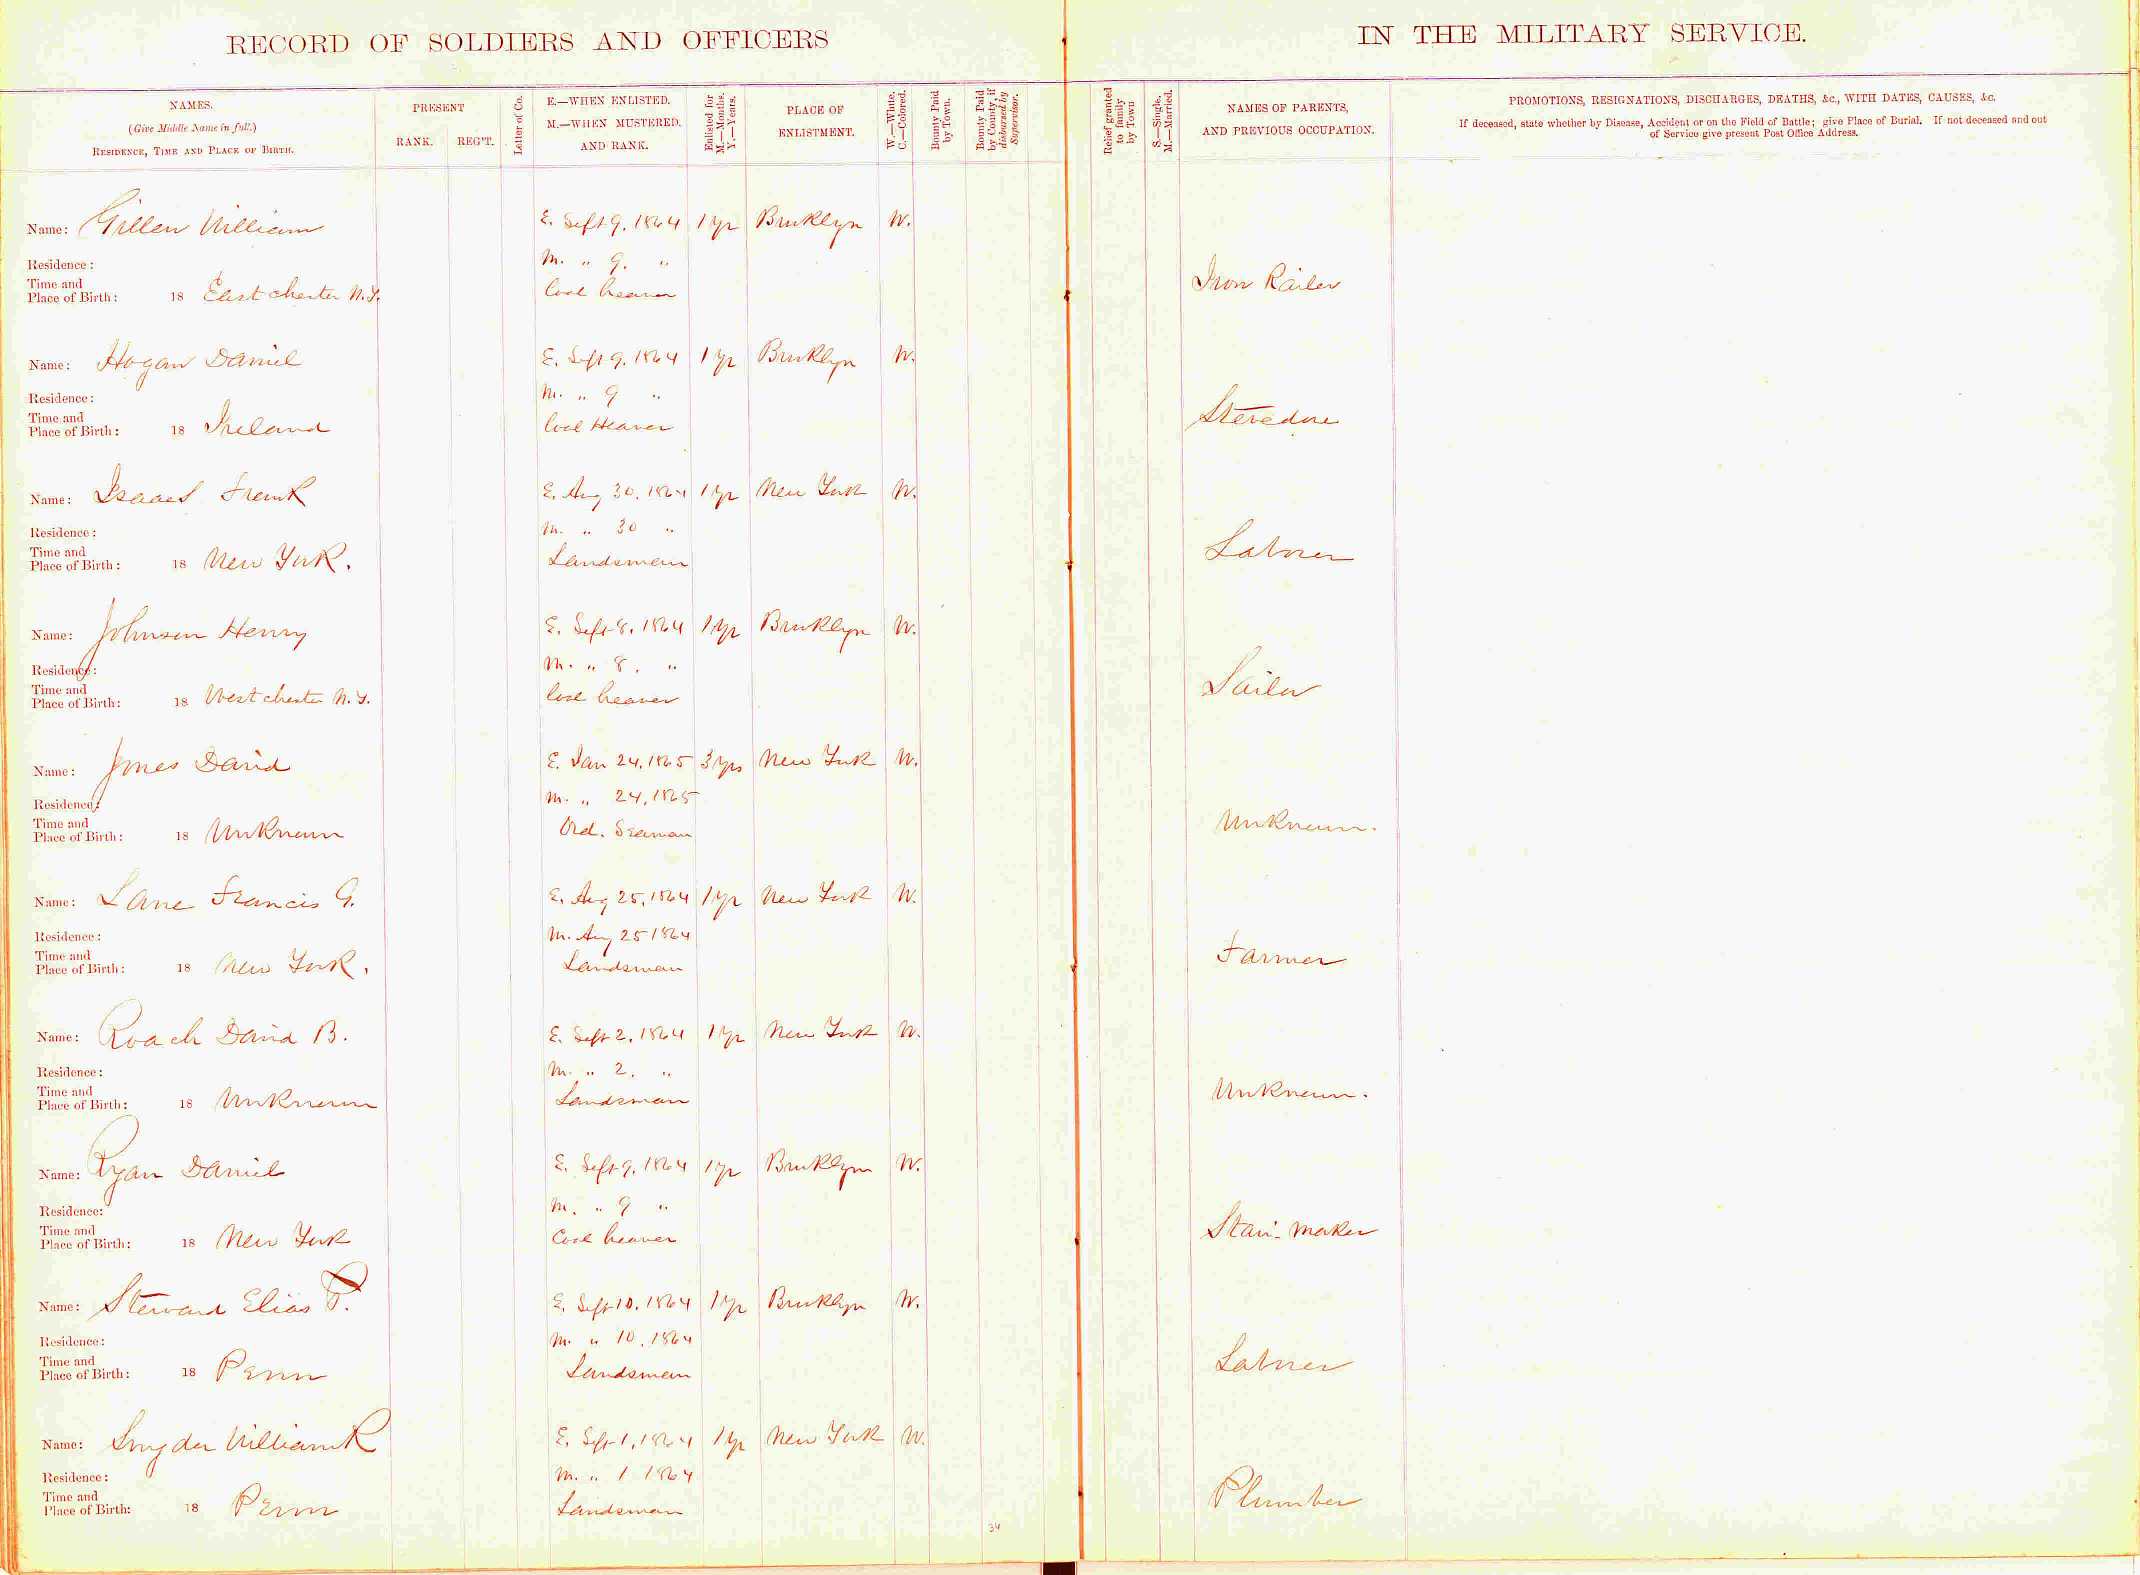 RECORD OF SOLDIERS AND OFFICERS IN THE MILITARY SERVICE.
NAMES.
(Give Middle Name in full.)
RESIDENCE, TIME AND PLACE OF BIRTH.
PRESENT
RANK. REG'T.
Letter of Co.
E.—WHEN ENLISTED.
M.—WHEN MUSTERED.
AND RANK.
Enlisted for
M.—Months.
Y.—Years.
PLACE OF
ENLISTMENT.
W.—White.
C.—Colored.
Bounty Paid
by Town.
Bounty Paid
by County, if
disbursed by
Supervisor.
Relief granted
to family
by Town
S.—Single.
M.—Married.
NAMES OF PARENTS,
AND PREVIOUS OCCUPATION.
PROMOTIONS, RESIGNATIONS, DISCHARGES, DEATHS, &c., WITH DATES, CAUSES, &c.
If deceased, state whether by Disease, Accident or on the Field of Battle; give Place of Burial. If not deceased and out
of Service give present Post Office Address.
Name: Gillen William E. Sept 9, 1864 1 yr Brooklyn W.
Residence: M. " 9. "
Time and
Place of Birth: 18 Eastchester N.Y. Coal heaver Iron Railer
Name: Hogan Daniel E. Sept 9, 1864 1 yr Brooklyn W.
Residence: M. " 9 "
Time and
Place of Birth: 18 Ireland Coal Heaver Stevedore
Name: Isaacs Frank E. Aug 30, 1864 1 yr New York W.
Residence: M. " 30 "
Time and
Place of Birth: 18 New York. Landsman Laborer
Name: Johnson Henry E. Sept 8, 1864 1 yr Brooklyn W.
Residence: M. " 8. "
Time and
Place of Birth: 18 Westchester N.Y. Coal heaver Sailor
Name: Jones David E. Jan 24, 1865 3 yrs New York W.
Residence: M. " 24, 1865
Time and
Place of Birth: 18 Unknown Ord. Seaman Unknown.
Name: Lane Francis G. E. Aug 25, 1864 1 yr New York W.
Residence: M. Aug 25 1864
Time and
Place of Birth: 18 New York. Landsman Farmer
Name: Roach David B. E. Sept 2, 1864 1 yr New York W.
Residence: M. " 2. "
Time and
Place of Birth: 18 Unknown Landsman Unknown.
Name: Ryan Daniel E. Sept 9, 1864 1 yr Brooklyn W.
Residence: M. " 9 "
Time and
Place of Birth: 18 New York Coal heaver Stair-maker
Name: Steward Elias P. E. Sept 10, 1864 1 yr Brooklyn W.
Residence: M. " 10, 1864
Time and
Place of Birth: 18 Penn Landsman Laborer
Name: Snyder William R E. Sept 1, 1864 1 yr New York W.
Residence: M. " 1 1864
Time and
Place of Birth: 18 Penn Landsman Plumber
34